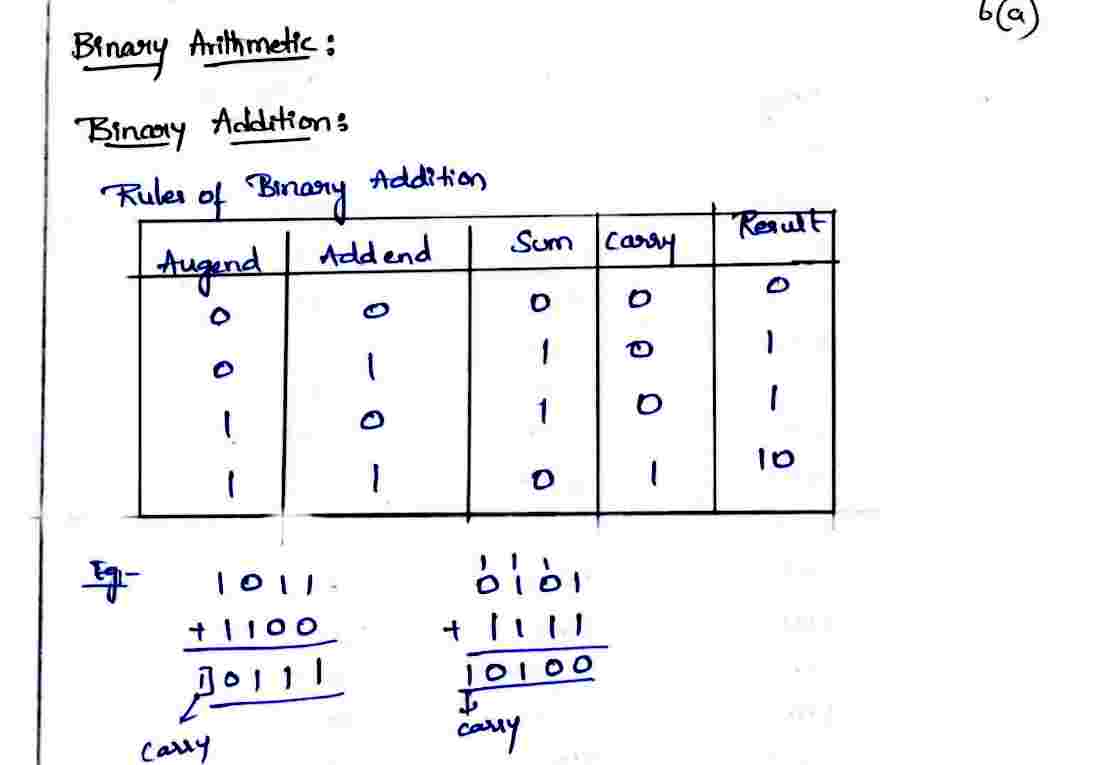 6(a)
Binary Arithmetic:
Binary Addition:
Rules of Binary Addition
Augend Addend Sum Carry Result
0 0 0 0 0
0 1 1 0 1
1 0 1 0 1
1 1 0 1 10
Eg:- 1011 0101
1 1 1
+ 1100 + 1111
1]0111 10100
Carry carry